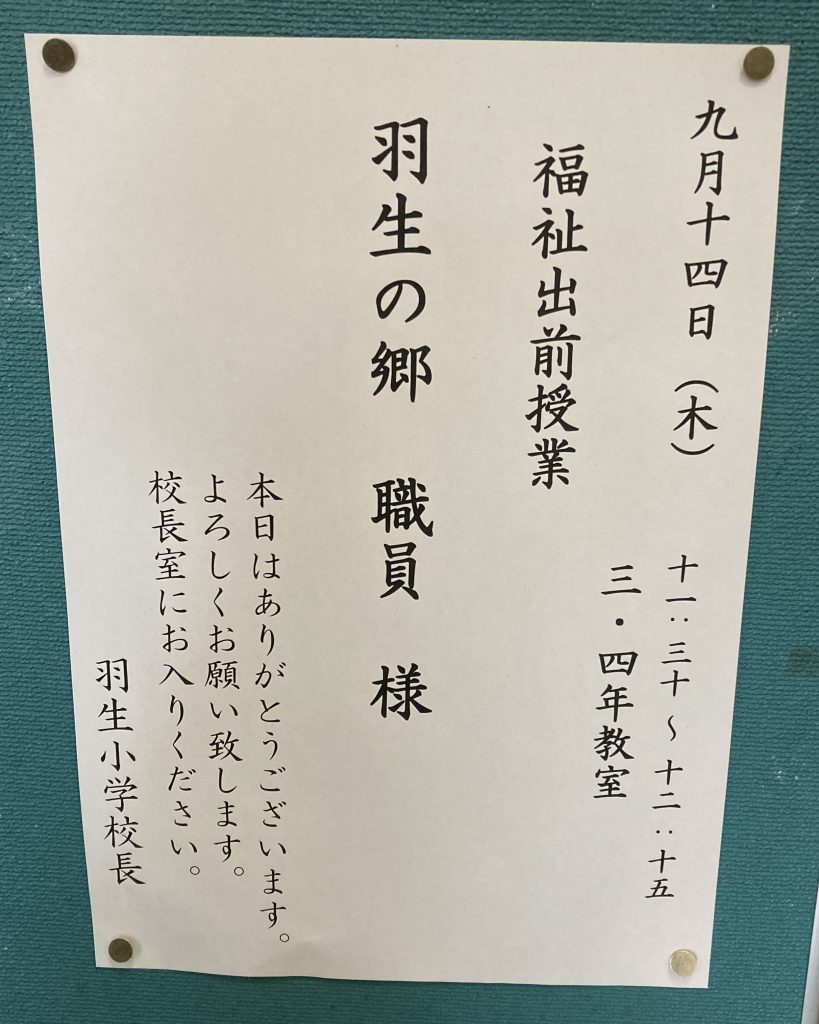 九月十四日（木）
十一：三十～十二：十五
三・四年教室
福祉出前授業
羽生の郷　職員　様
本日はありがとうございます。
よろしくお願い致します。
校長室にお入りください。
羽生小学校長